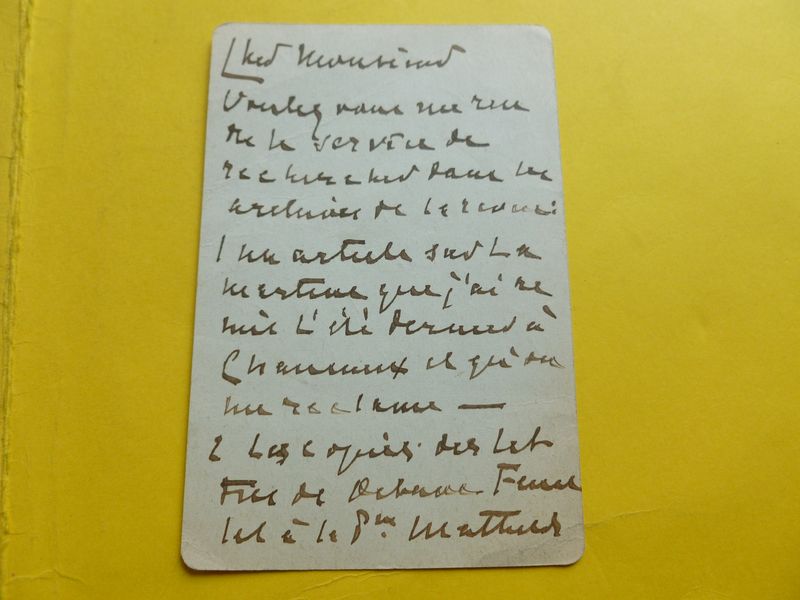 Cher Monsieur
Voulez vous me ren
dre le service de
rechercher dans les
archives de la revue:
1 un article sur La
martine que j'ai re
mis l'été dernier à
et qu'on
me réclame —
2 Les copies des let
tres de Octave Feuil
let à la Pss Mathilde